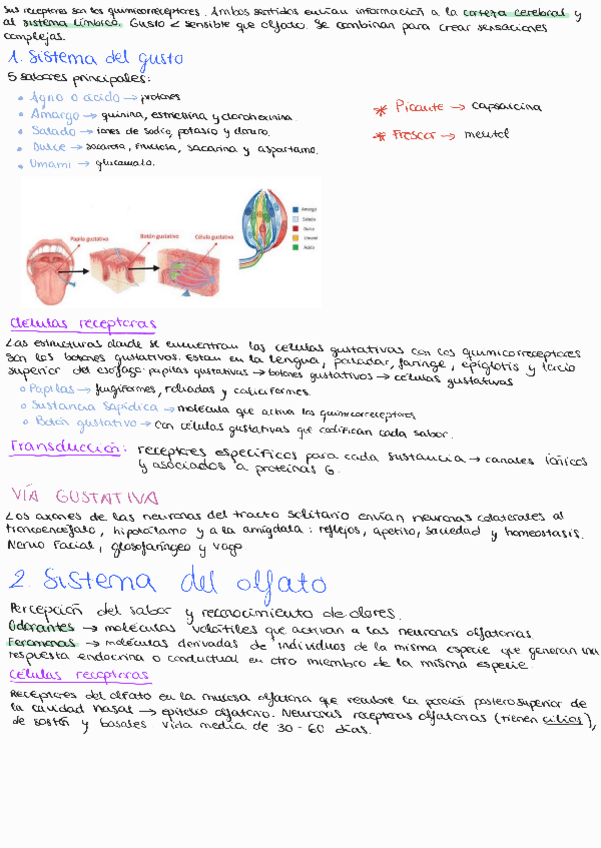 Sus receptores son los quimiorreceptores. Ambos sentidos envían información a la corteza cerebral y
al sistema límbico. Gusto < sensible que olfato. Se combinan para crear sensaciones
complejas.
1. Sistema del gusto
5 sabores principales:
Agrio o ácido → protones
Amargo → quinina, estricnina y clorohexinina.
Salado → iones de sodio, potasio y cloruro.
Dulce → sacarosa, fructosa, sacarina y aspartamo.
Umami → glutamato.
* Picante → capsaicina
* Frescor → mentol
Papila gustativa
Botón gustativo
Célula gustativa
Amargo
Salado
Dulce
Umami
Ácido
Células receptoras
Las estructuras donde se encuentran las células gustativas con los quimiorreceptores
son los botones gustativos. Están en la lengua, paladar, faringe, epiglotis y tercio
superior del esófago: papilas gustativas → botones gustativos → células gustativas
Papilas → fungiformes, foliadas y caliciformes.
Sustancia sápidica → molécula que activa los quimiorreceptores
Botón gustativo → con células gustativas que codifican cada sabor.
Transducción: receptores específicos para cada sustancia → canales iónicos
y asociados a proteínas G.
VÍA GUSTATIVA
Los axones de las neuronas del tracto solitario envían neuronas colaterales al
troncoencéfalo, hipotálamo y a la amígdala: reflejos, apetito, saciedad y homeostasis.
Nervio Facial, glosofaríngeo y vago
2. Sistema del olfato
Percepción del sabor y reconocimiento de olores.
Odorantes → moléculas volátiles que activan a las neuronas olfatorias.
Feromonas → moléculas derivadas de individuos de la misma especie que generan una
respuesta endocrina o conductual en otro miembro de la misma especie.
Células receptoras
Receptores del olfato en la mucosa olfatoria que recubre la porción posterosuperior de
la cavidad nasal → epitelio olfatorio. Neuronas receptoras olfatorias (tienen cilios),
de sostén y basales vida media de 30-60 días.